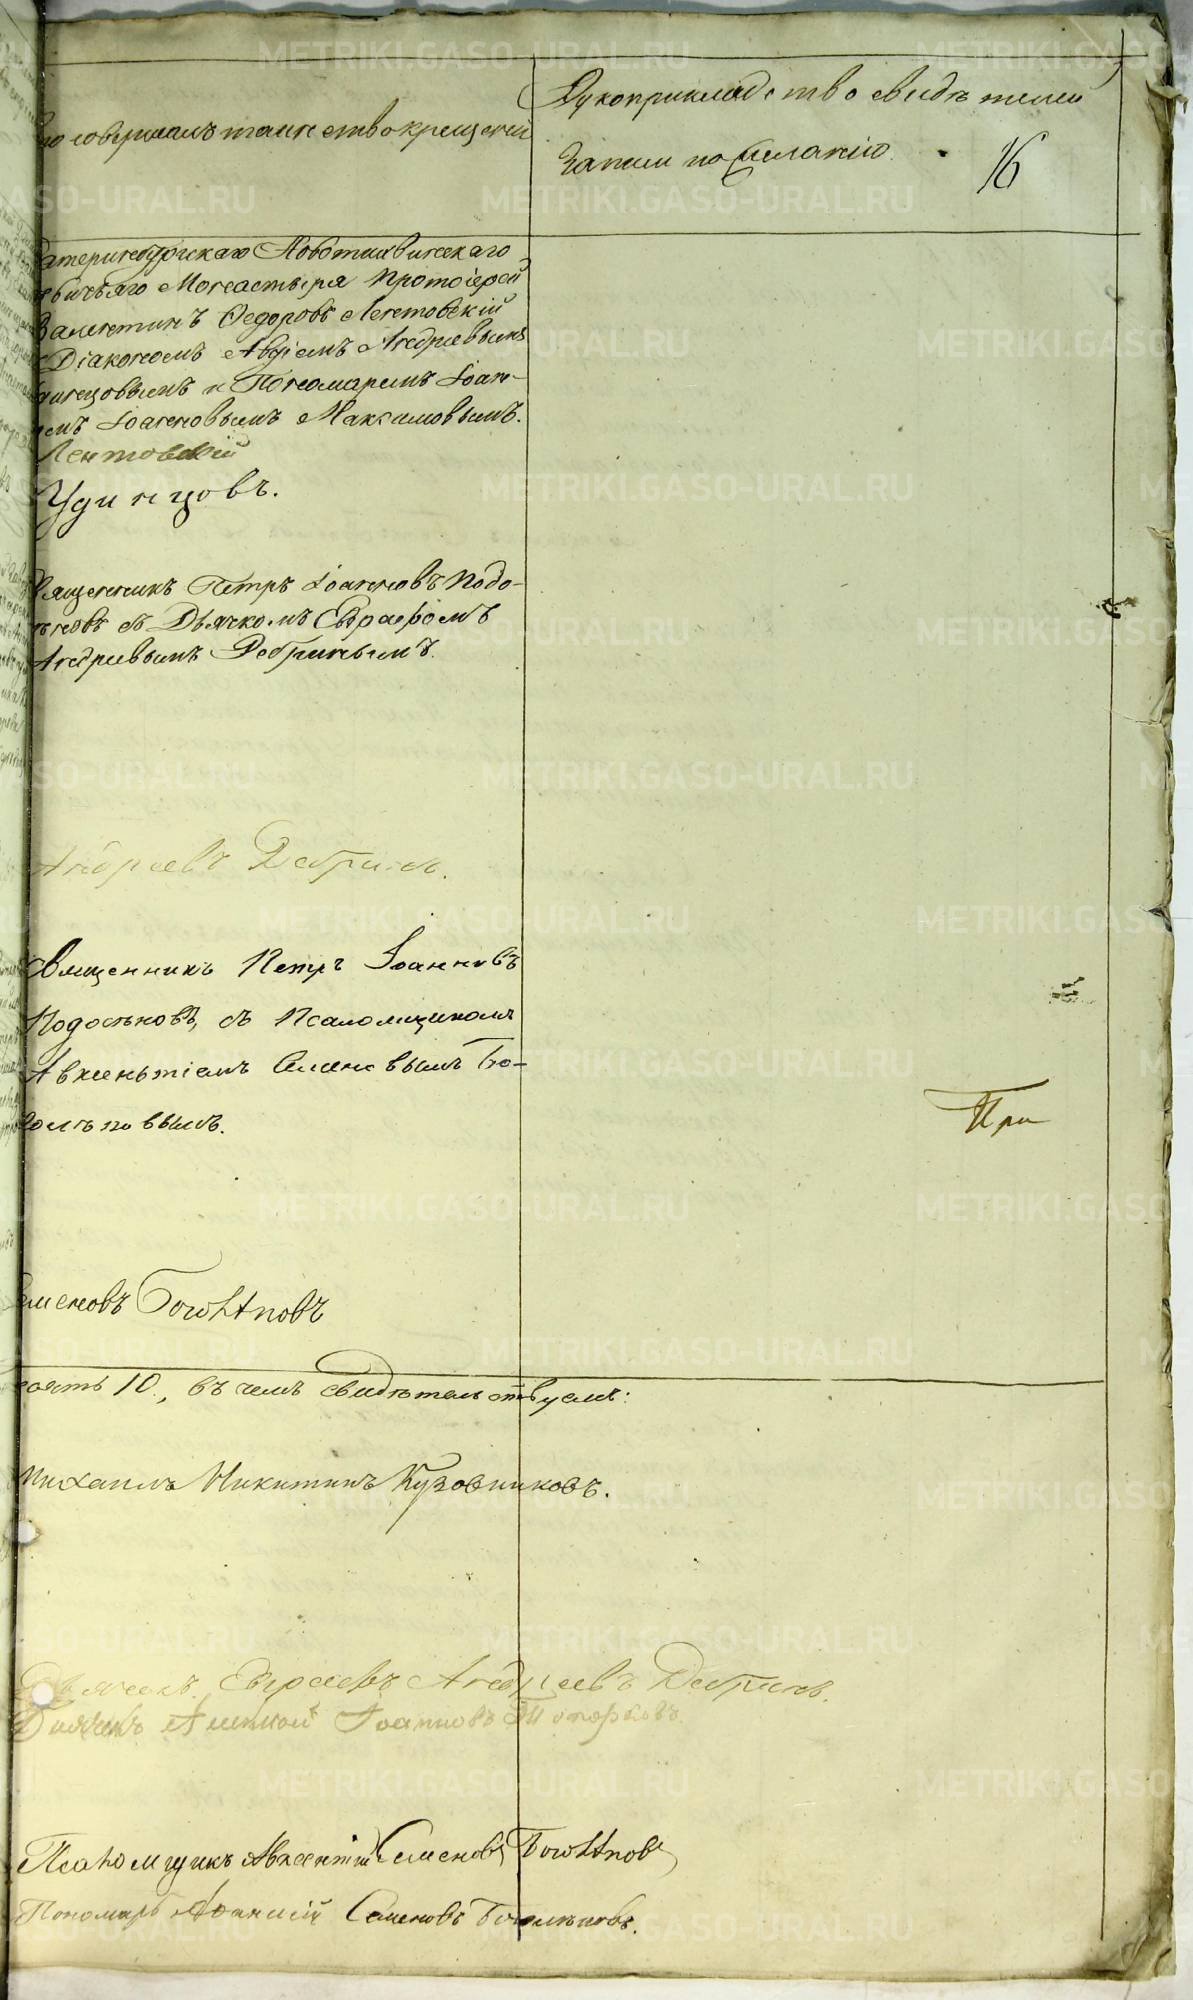 то совершалъ таинство крещенія
Рукоприкладство свидѣтелей
записи по желанію.
16
Екатеринбургскаго Новотихвинскаго
дѣвичьяго Монастыря Протоіерей
Валентинъ Ѳедоровъ Лентовскій
съ Діакономъ Авдіемъ Андреевымъ
Удинцовымъ и Пономаремъ Іоан-
номъ Іоанновымъ Максимовымъ.
Лентовскій
Удинцовъ.
Священникъ Петръ Іоанновъ Подо-
сѣновъ съ Дьячкомъ Евграфомъ
Андреевымъ Дебринымъ.
Андреевъ Дебринъ.
Священникъ Петръ Іоанновъ
Подосѣновъ, съ Псаломщикомъ
Авксентіемъ Семеновымъ Бо-
голѣповымъ.
При
Семеновъ Боголѣповъ
десять 10, въ чемъ свидѣтельствуемъ:
Михаилъ Никитинъ Кузовниковъ.
Дьячекъ Евграфъ Андреевъ Дебринъ.
Дьячекъ Алексѣй Іоанновъ Топорковъ.
Псаломщикъ Авксентій Семеновъ Боголѣповъ
Пономарь Афанасій Семеновъ Боголѣповъ.
METRIKI.GASO-URAL.RU